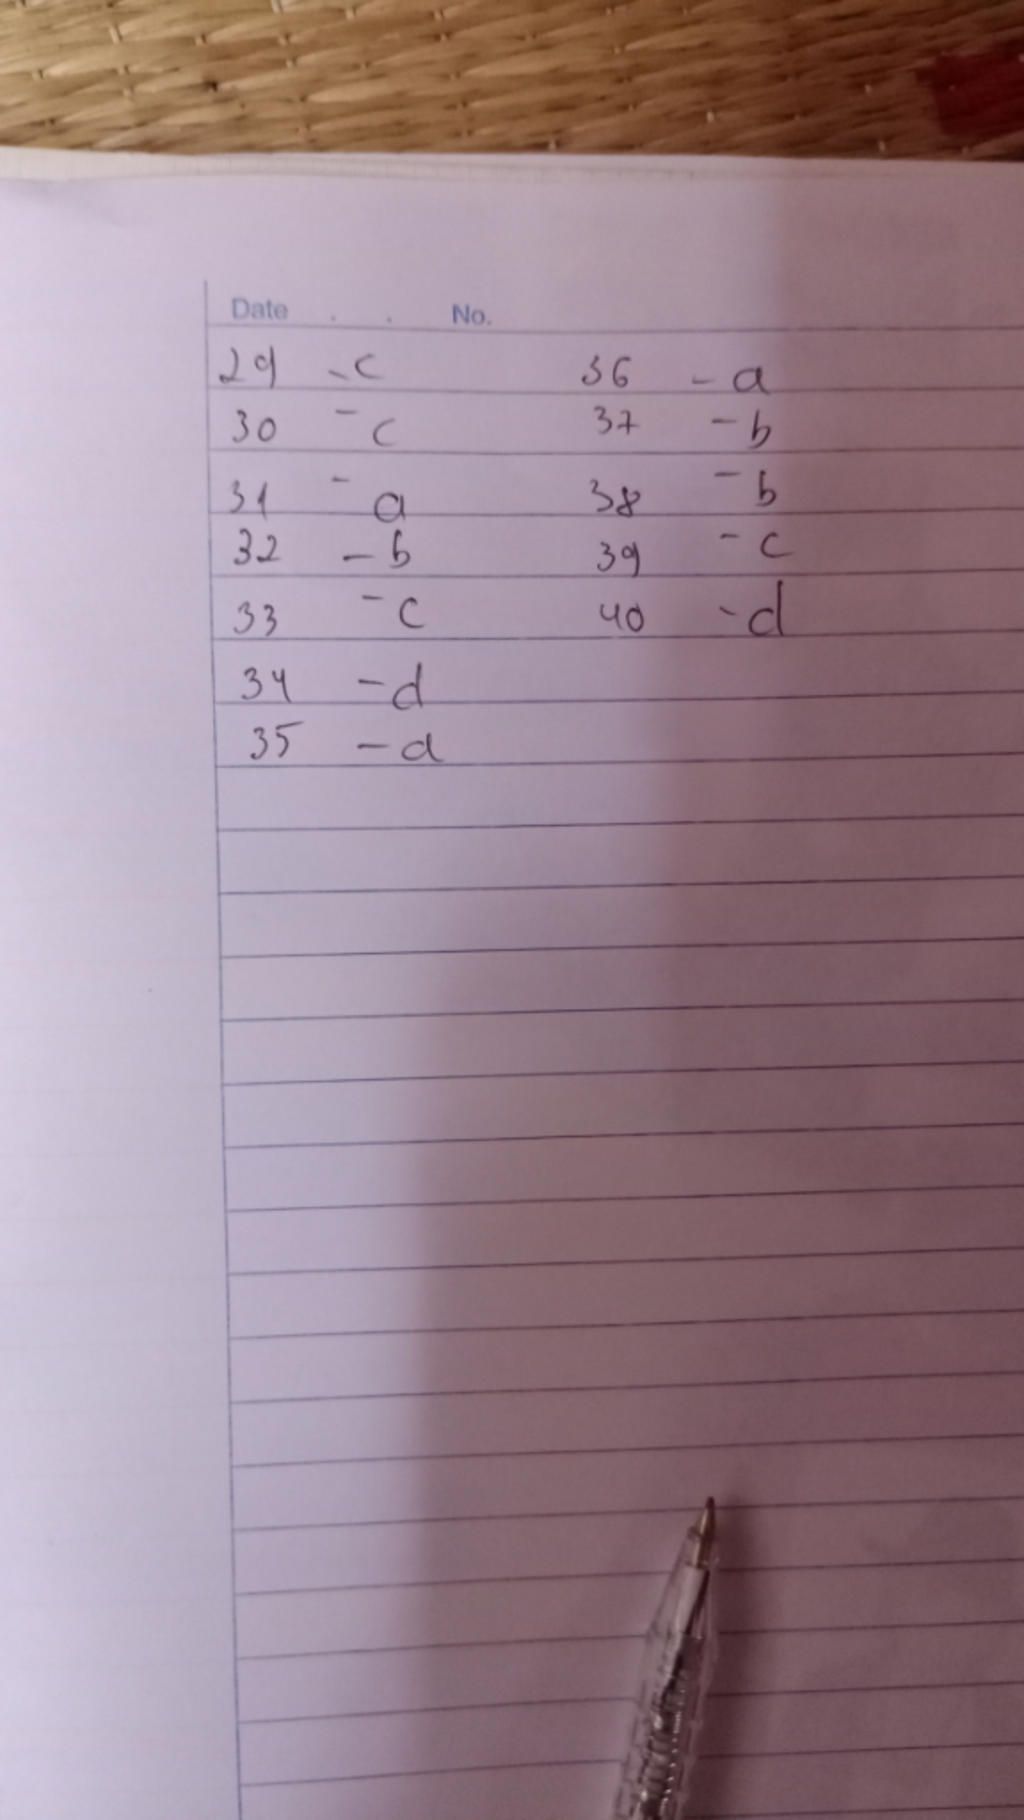 Date . . No.
29 - c 36 - a
30 - c 37 - b
31 - a 38 - b
32 - b 39 - c
33 - c 40 - d
34 - d
35 - d